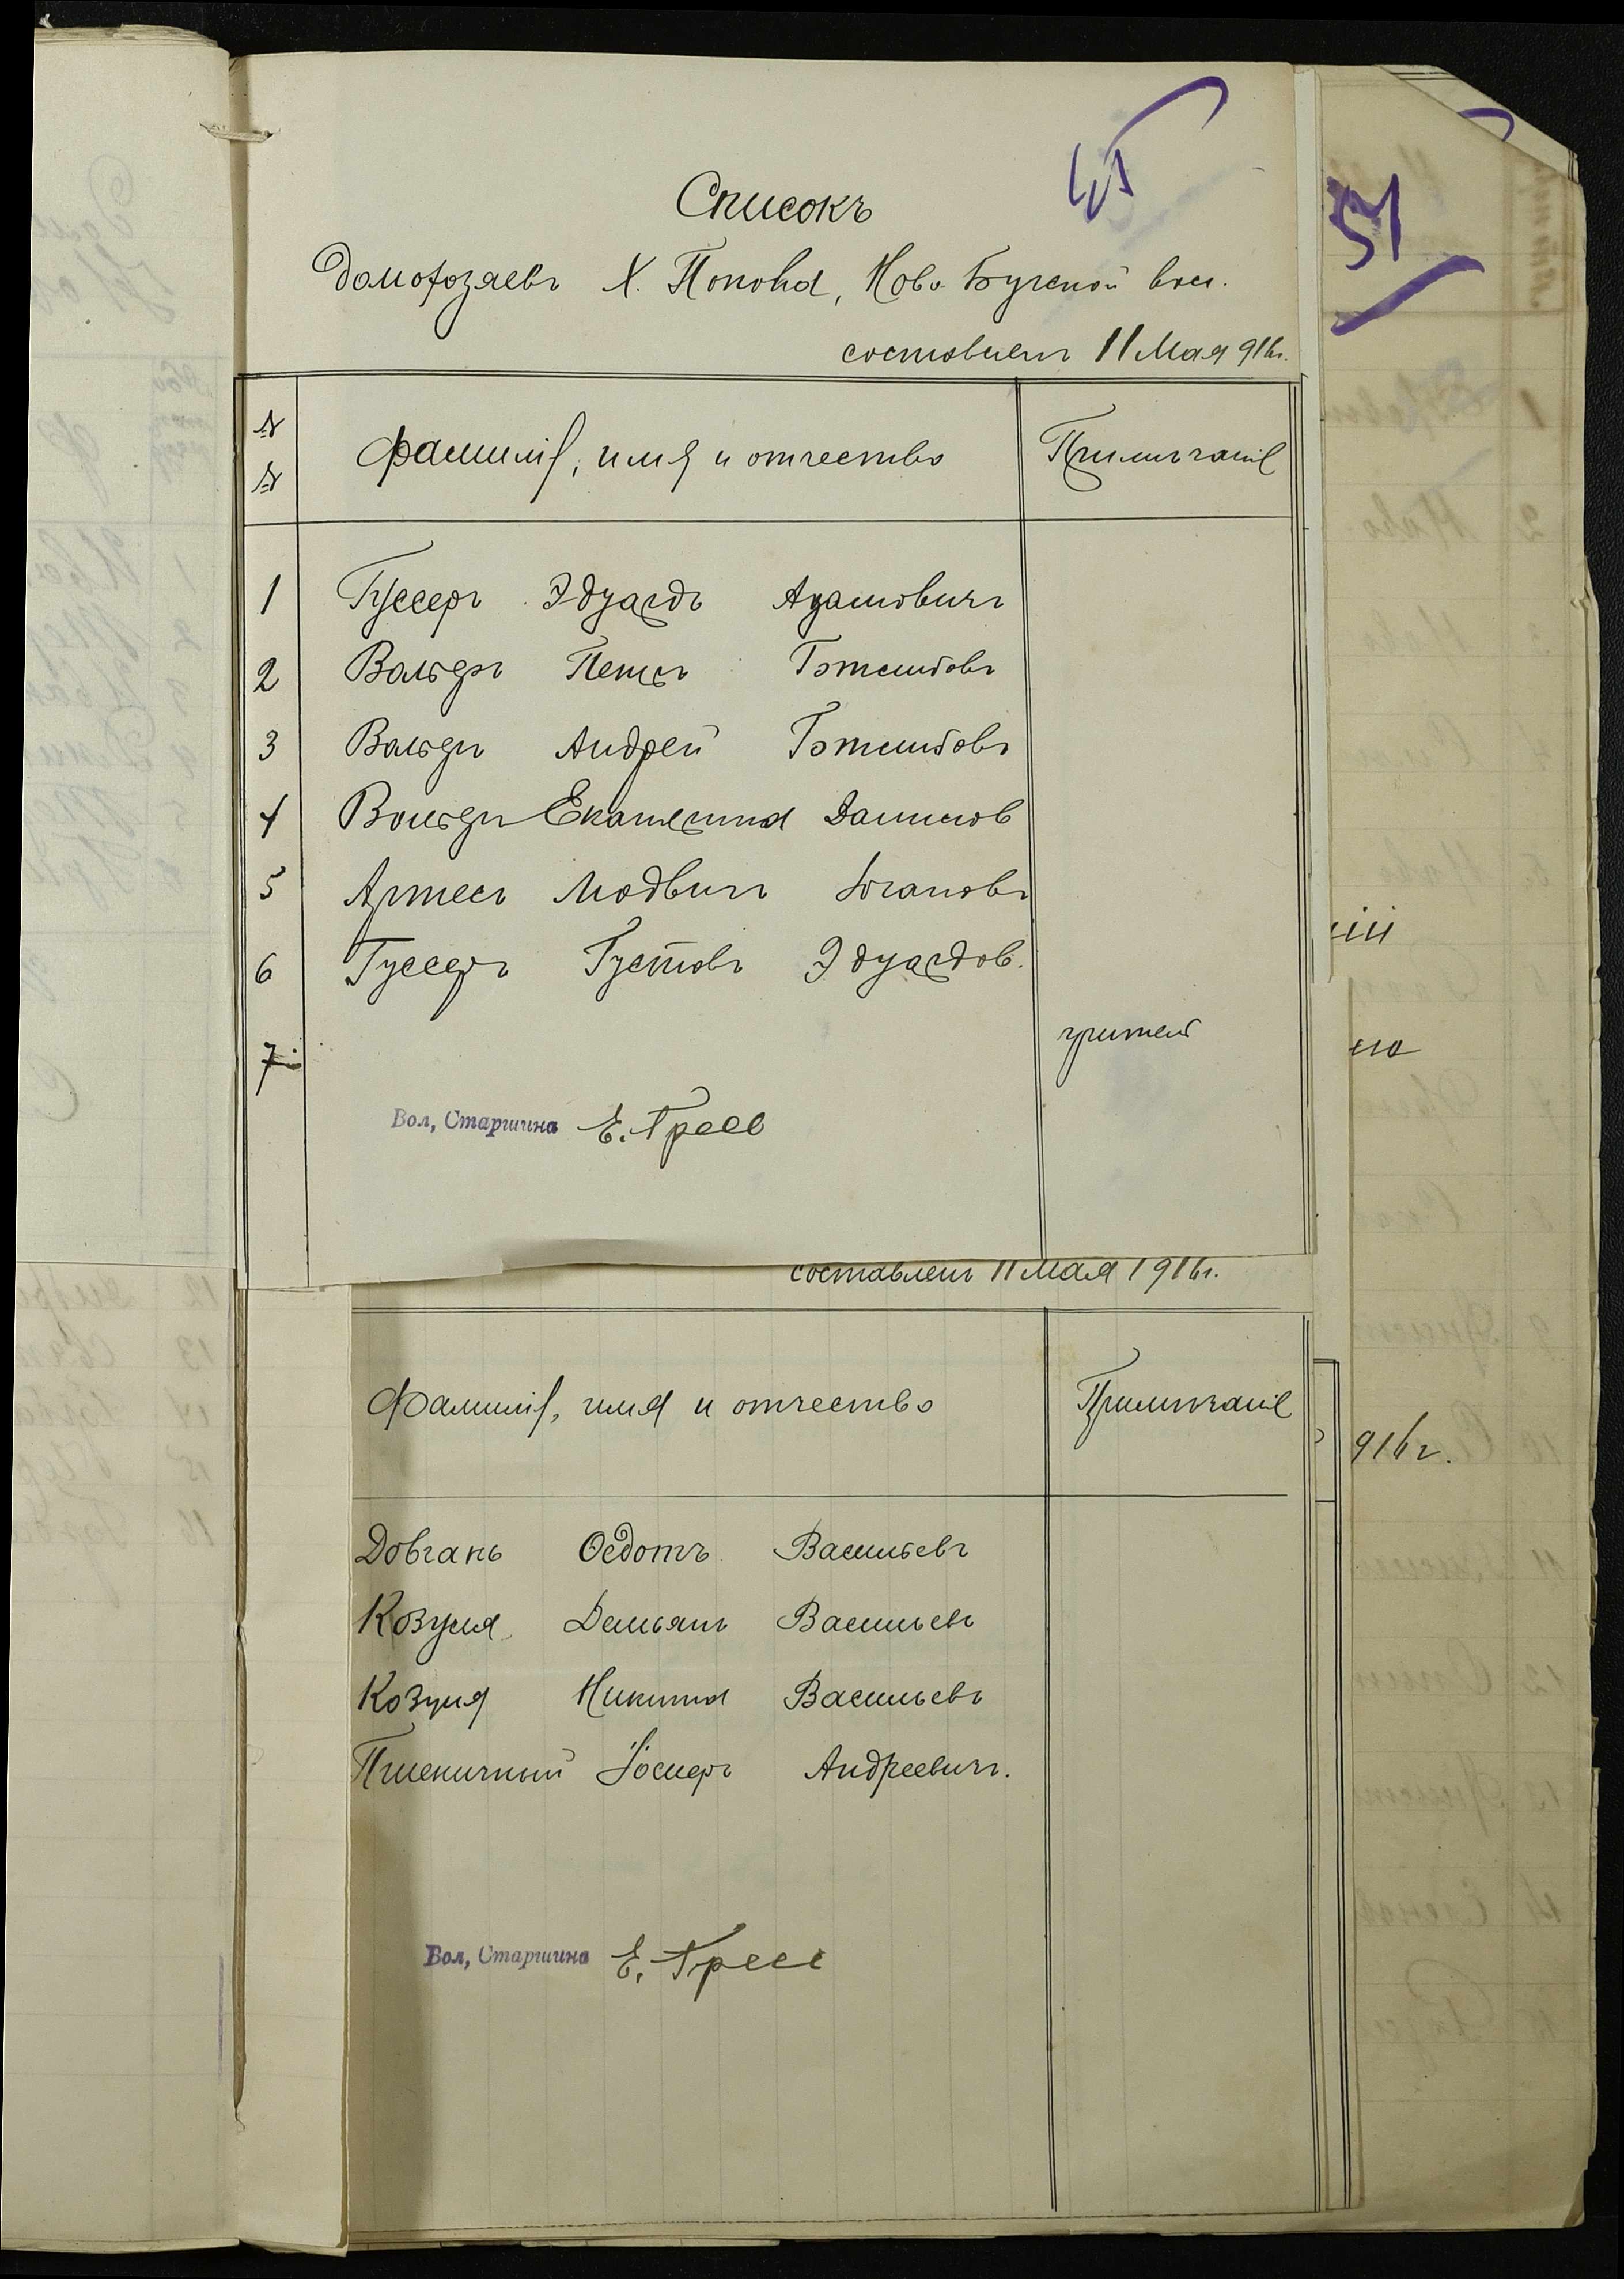 45
Списокъ
домохозяевъ Х. Попова, Ново Бугской вол.
составленъ 11 Мая 916 г.
№ № Фамилія, имя и отчество Примѣчаніе
1 Гуссеръ Эдуардъ Адамовичъ
2 Вольфъ Петръ Готлибовъ
3 Вольфъ Андрей Готлибовъ
4 Вольфъ Екатерина Данилов
5 Артесъ Людвигъ Югановъ
6 Гуссеръ Густавъ Эдуардов.
7 учитель
Вол. Старшина Е. Гресс
составленъ 11 Мая 1916 г.
Фамилія, имя и отчество Примѣчаніе
Довгань Ѳедотъ Васильевъ
Козуля Демьянъ Васильевъ
Козуля Никита Васильевъ
Пшеничный Іосифъ Андреевичъ.
Вол. Старшина Е. Гресс
51
916 г.